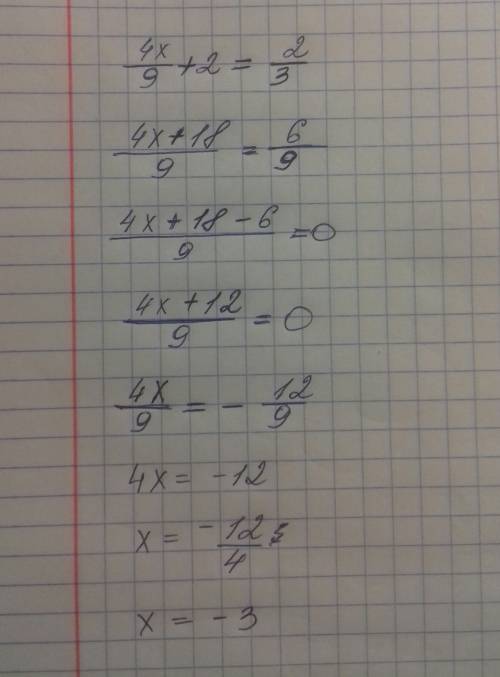 4x/9 + 2 = 2/3
4x + 18/9 = 6/9
4x + 18 - 6/9 = 0
4x + 12/9 = 0
4x/9 = - 12/9
4x = -12
x = -12/4
x = -3